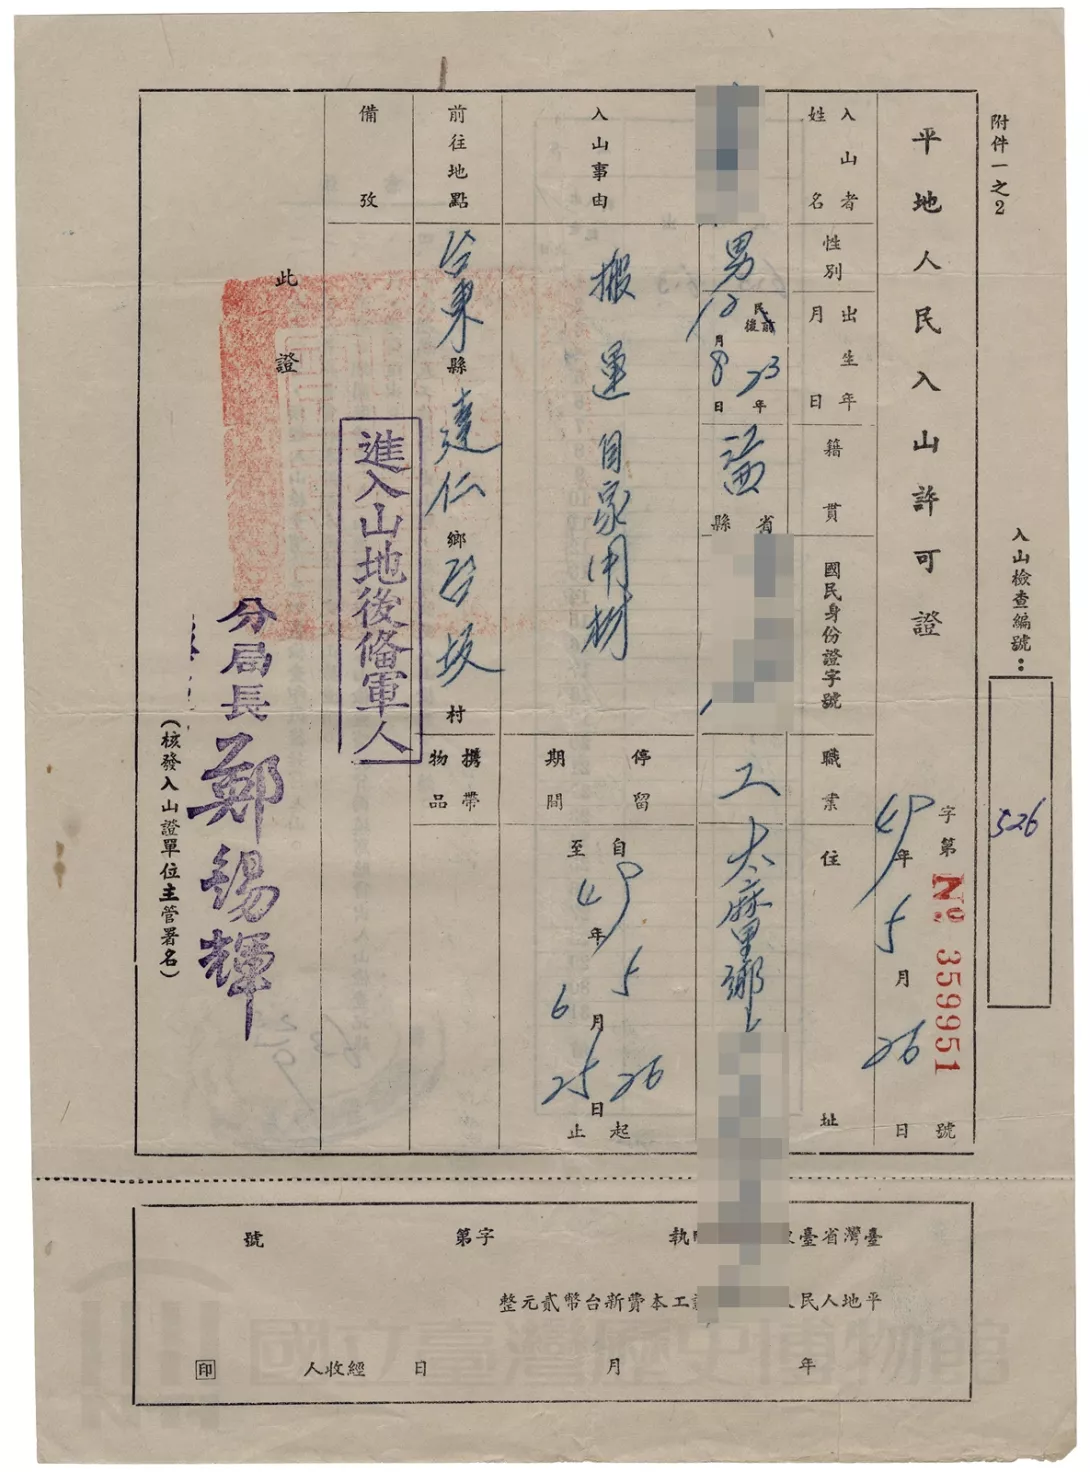 附件一之2
入山檢查編號：
526
平地人民入山許可證
字第 № 359951 號
49年5月26日
入山者姓名
性別
出生年月日
籍貫
國民身份證字號
職業
住址
男
民前後 23年12月8日
江西省
縣
工
太麻里鄉
入山事由
搬運自家用材
停留期間
自49年5月26日起
至 6月25日止
前往地點
台東縣達仁鄉台坂村
攜帶物品
備攷
進入山地後備軍人
此證
分局長 鄭錫輝
(核發入山證單位主管署名)
臺灣省臺
執
字第號
平地人民
工本費新台幣貳元整
年月日
經收人
印
國立臺灣歷史博物館